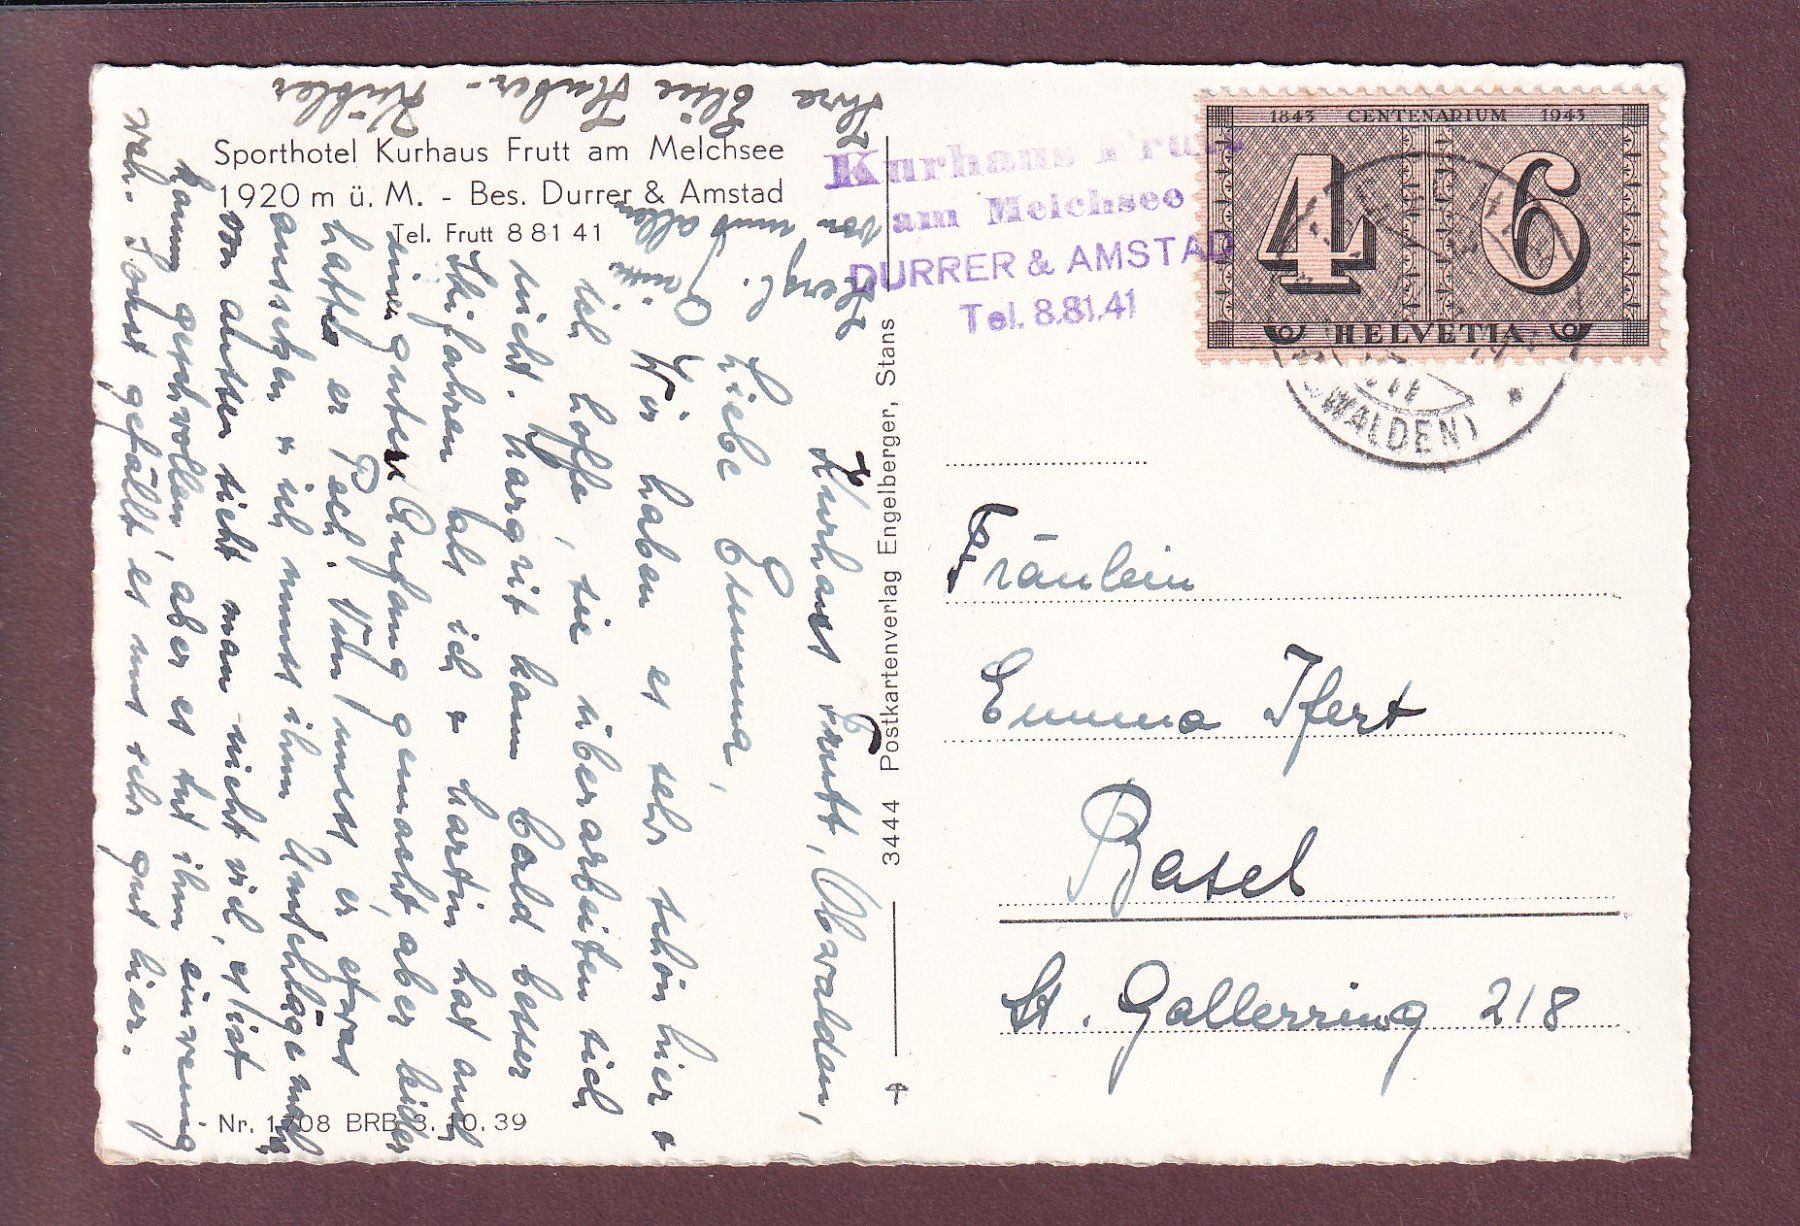 Sporthotel Kurhaus Frutt am Melchsee
1920 m ü. M. - Bes. Durrer & Amstad
Tel. Frutt 8 81 41
Kurhaus Frutt, Obwalden,
Liebe Emma,
Wir haben es sehr schön hier &
ich hoffe, sie überarbeiten sich
nicht. Margrit kann bald besser
Skifahren als ich & Martin hat auch
einen guten Anfang gemacht, aber leider
hatte er Pech. Nun muss er etwas
aussetzen & ich muss ihm Umschläge machen
von aussen sieht man nicht viel, es ist
kaum geschwollen, aber es tut ihm ein wenig
weh. Sonst gefällt es uns sehr gut hier.
Herzl. Grüsse
von uns allen
Ihre Elise Huber-Kübler
Nr. 1708 BRB 3.10.39
3444 Postkartenverlag Engelberger, Stans
Kurhaus Frutt
am Melchsee
DURRER & AMSTAD
Tel. 8.81.41
1843 CENTENARIUM 1943
4 6
HELVETIA
(OBWALDEN)
Fräulein
Emma Ifert
Basel
St. Gallerring 218